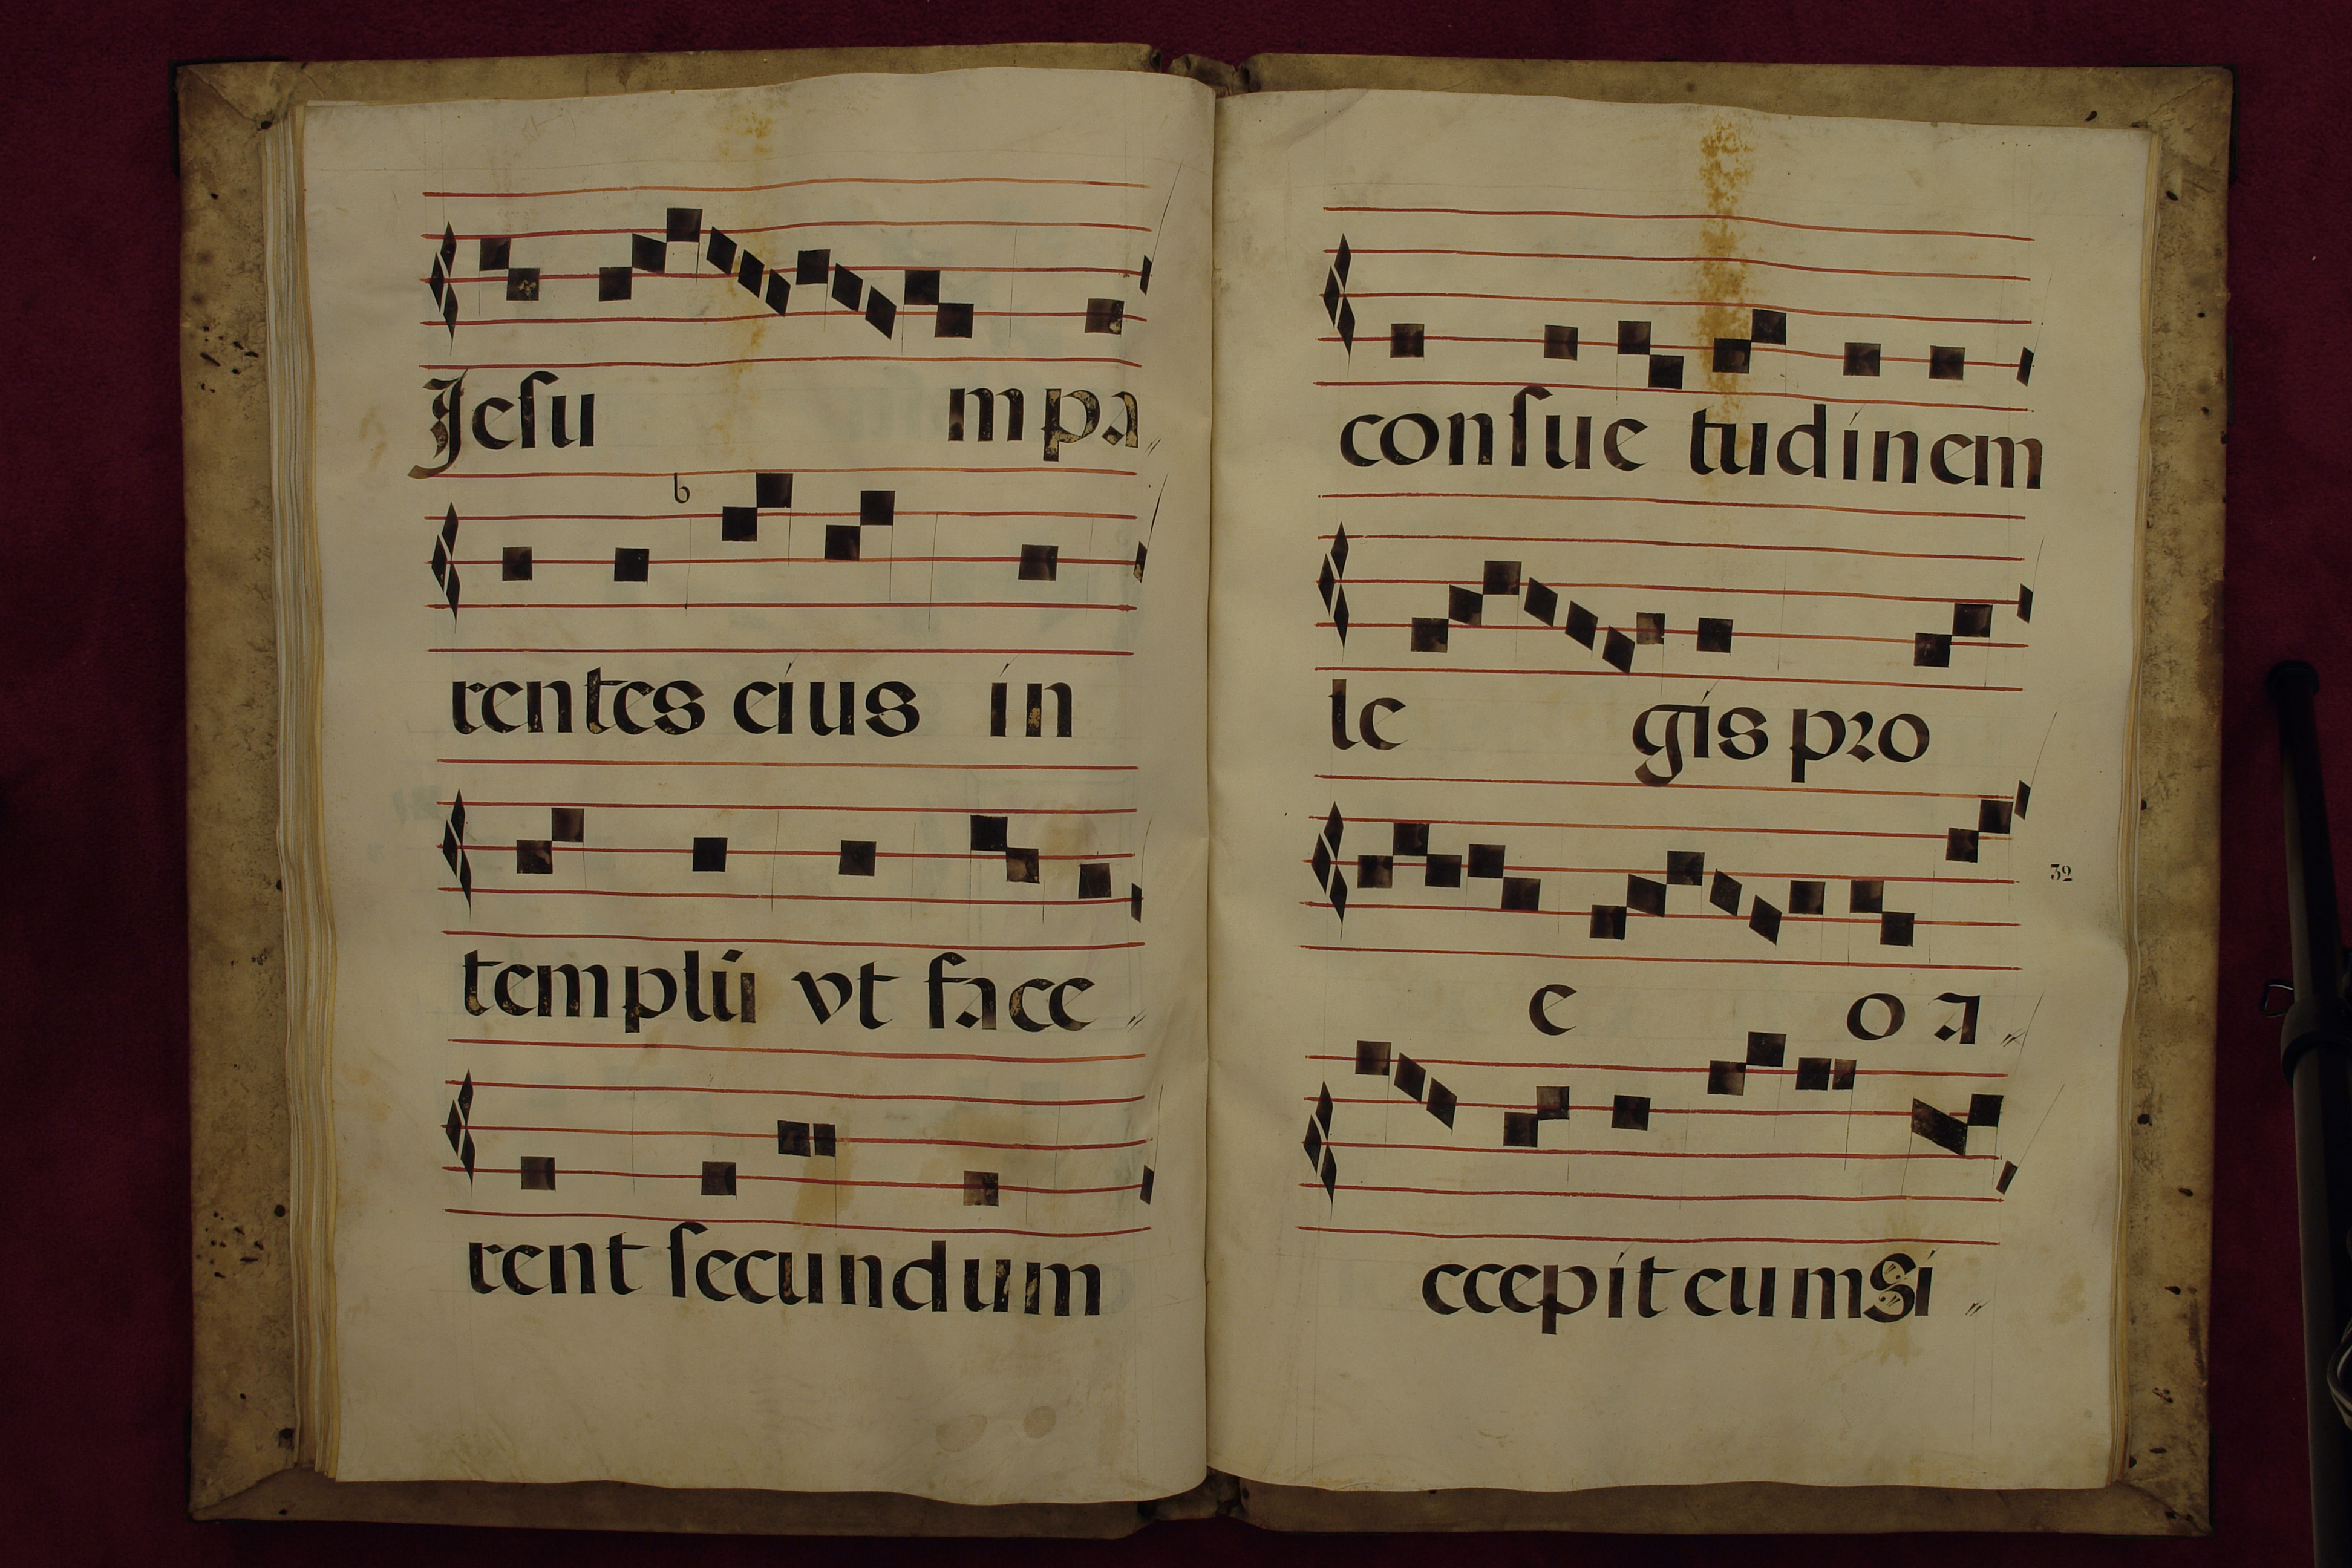 Jesu m pa
b
rentes eius in
templū vt face
rent secundum
consue tudinem
le gis pro
32
e o a
ccepit eum Si